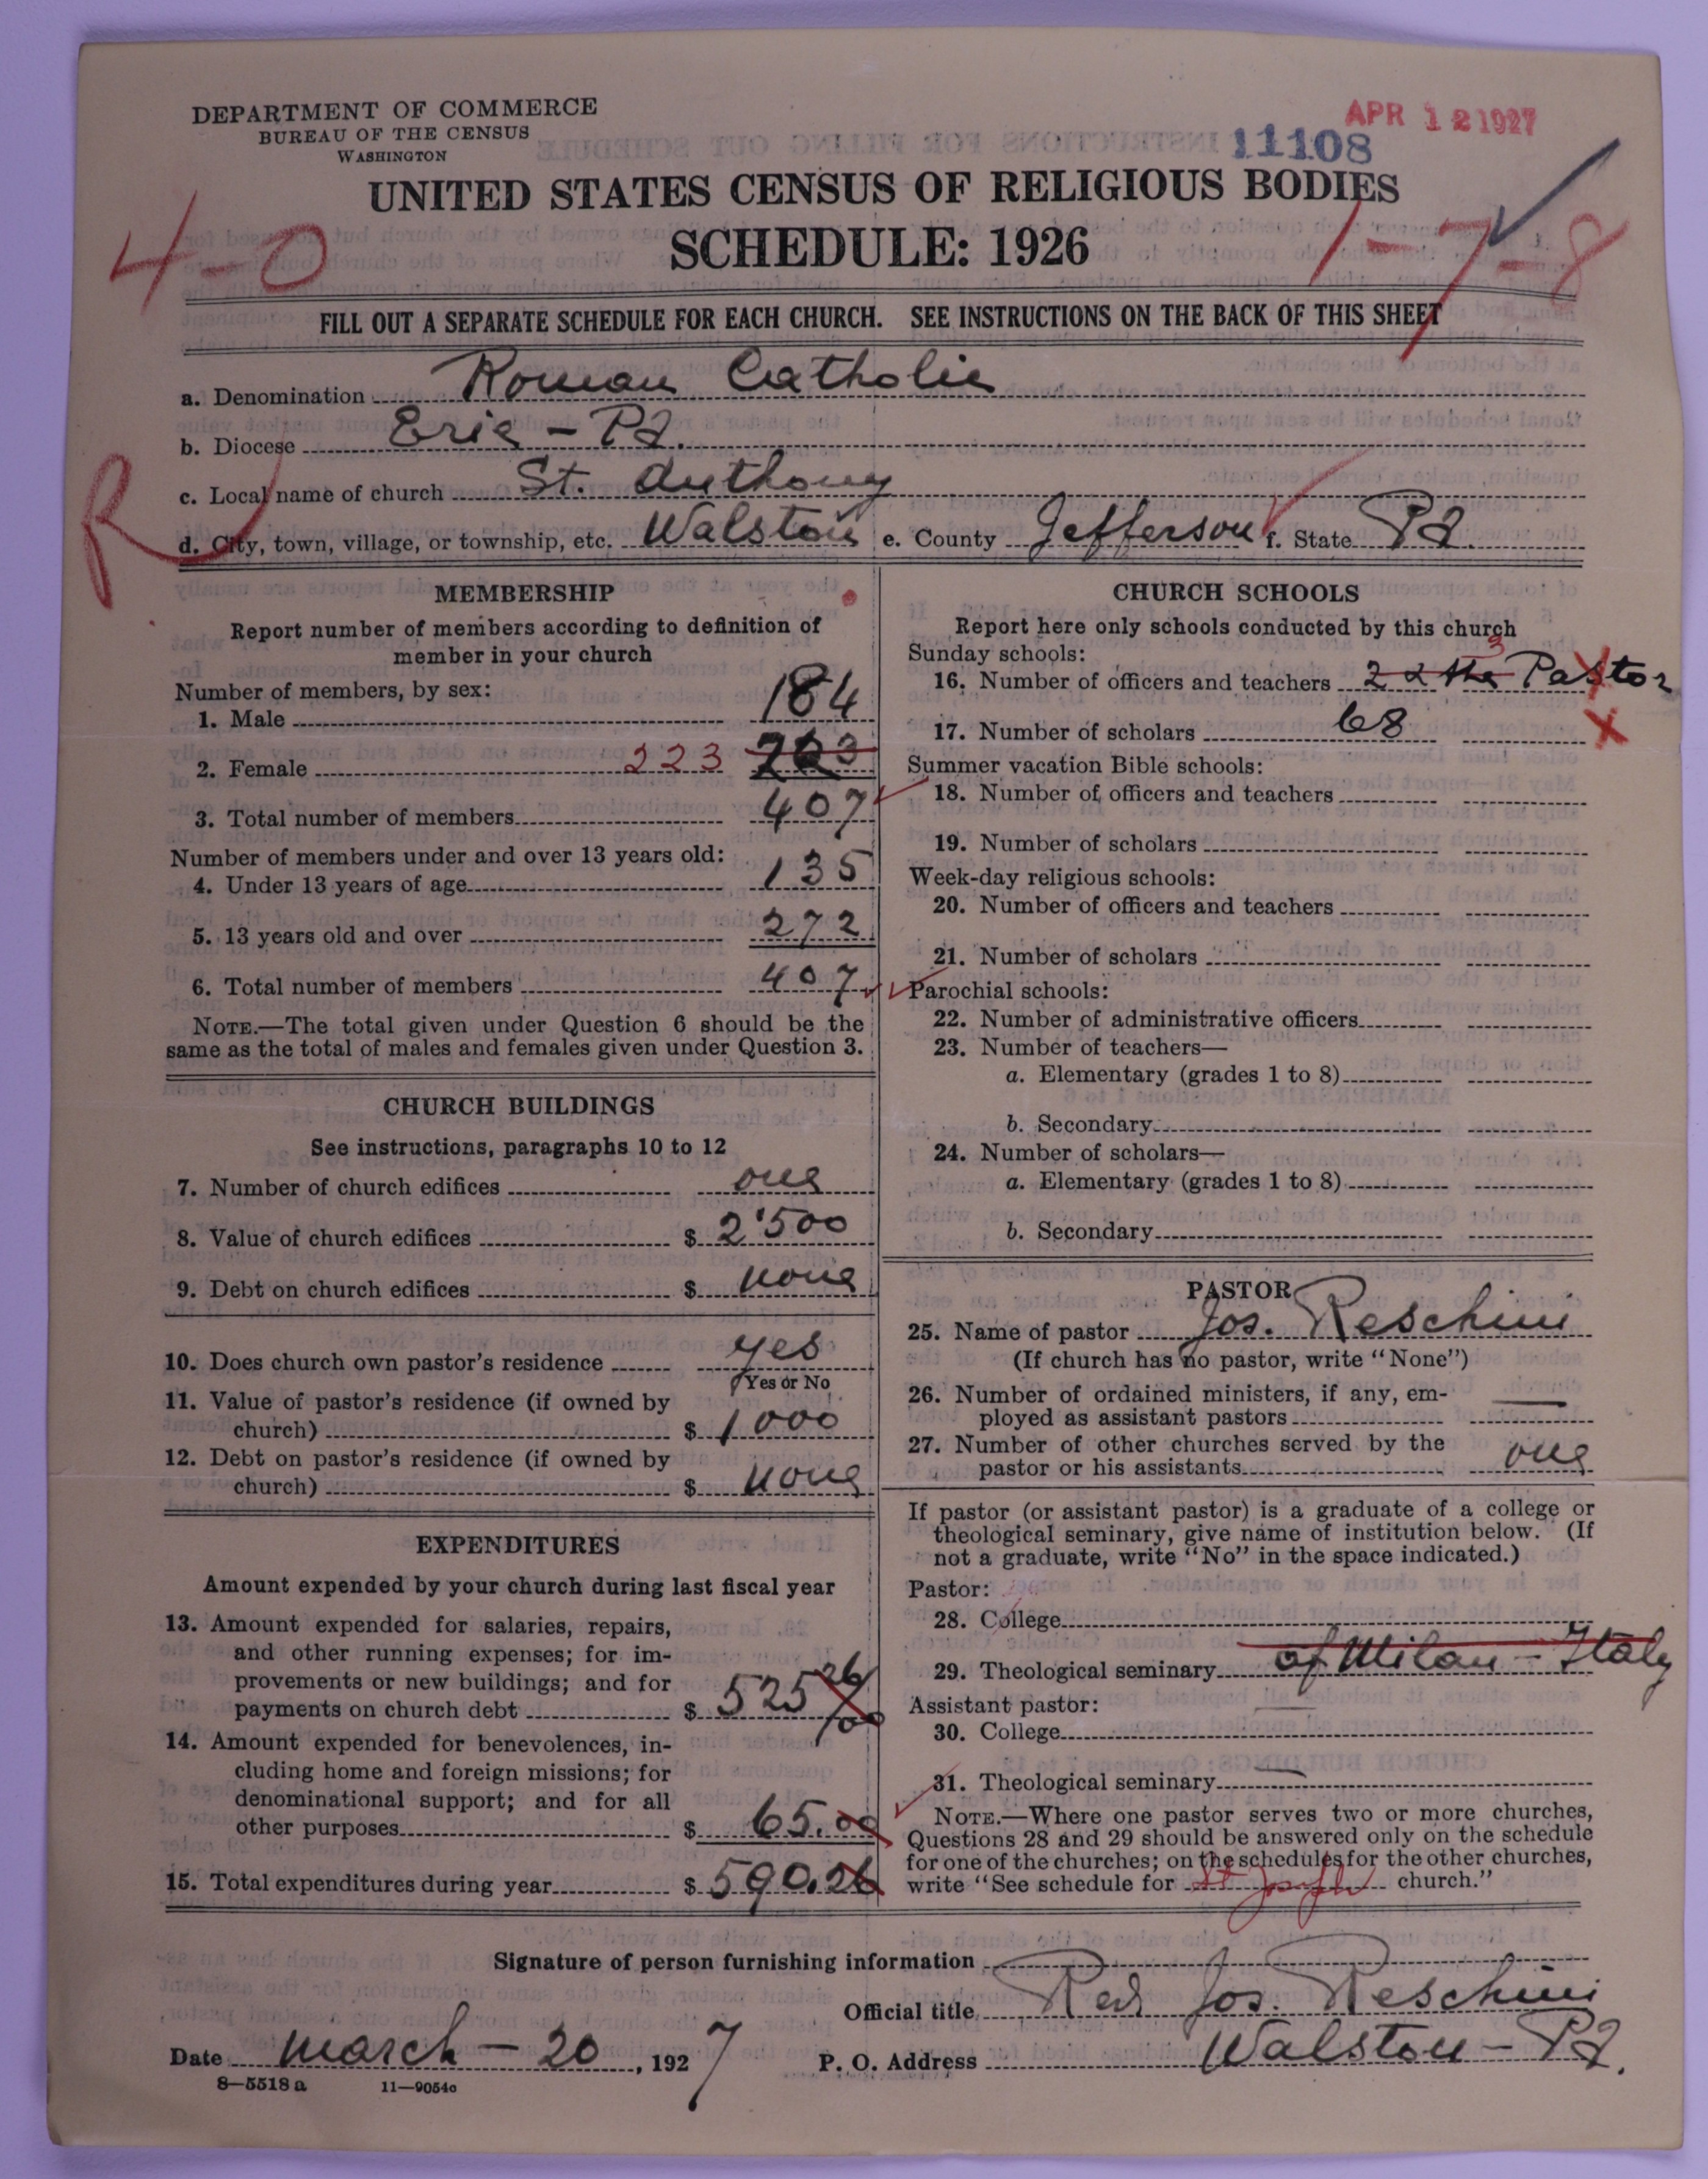 DEPARTMENT OF COMMERCE
BUREAU OF THE CENSUS
WASHINGTON
APR 12 1927
11108
UNITED STATES CENSUS OF RELIGIOUS BODIES
SCHEDULE: 1926
4-0
1-7-8
FILL OUT A SEPARATE SCHEDULE FOR EACH CHURCH. SEE INSTRUCTIONS ON THE BACK OF THIS SHEET
a. Denomination Roman Catholic
b. Diocese Erie - Pa.
R
c. Local name of church St. Anthony
d. City, town, village, or township, etc. Walston e. County Jefferson f. State Pa.
MEMBERSHIP
Report number of members according to definition of
member in your church
Number of members, by sex:
1. Male 184
2. Female 223
3. Total number of members 407
Number of members under and over 13 years old:
4. Under 13 years of age 135
5. 13 years old and over 272
6. Total number of members 407
NOTE.—The total given under Question 6 should be the
same as the total of males and females given under Question 3.
CHURCH BUILDINGS
See instructions, paragraphs 10 to 12
7. Number of church edifices one
8. Value of church edifices $ 2'500
9. Debt on church edifices $ none
10. Does church own pastor's residence yes
Yes or No
11. Value of pastor's residence (if owned by
church) $ 1000
12. Debt on pastor's residence (if owned by
church) $ none
EXPENDITURES
Amount expended by your church during last fiscal year
13. Amount expended for salaries, repairs,
and other running expenses; for im-
provements or new buildings; and for
payments on church debt $ 525 26/00
14. Amount expended for benevolences, in-
cluding home and foreign missions; for
denominational support; and for all
other purposes $ 65.00
15. Total expenditures during year $ 590.26
CHURCH SCHOOLS
Report here only schools conducted by this church
Sunday schools:
3
16. Number of officers and teachers 2 & the Pastor
17. Number of scholars 68 X
Summer vacation Bible schools:
18. Number of officers and teachers
19. Number of scholars
Week-day religious schools:
20. Number of officers and teachers
21. Number of scholars
Parochial schools:
22. Number of administrative officers
23. Number of teachers—
a. Elementary (grades 1 to 8)
b. Secondary
24. Number of scholars—
a. Elementary (grades 1 to 8)
b. Secondary
PASTOR
25. Name of pastor Jos. Reschini
(If church has no pastor, write "None")
26. Number of ordained ministers, if any, em-
ployed as assistant pastors —
27. Number of other churches served by the
pastor or his assistants one
If pastor (or assistant pastor) is a graduate of a college or
theological seminary, give name of institution below. (If
not a graduate, write "No" in the space indicated.)
Pastor:
28. College
29. Theological seminary of Milan - Italy
Assistant pastor:
30. College
31. Theological seminary
NOTE.—Where one pastor serves two or more churches,
Questions 28 and 29 should be answered only on the schedule
for one of the churches; on the schedules for the other churches,
write "See schedule for St Joseph church."
Signature of person furnishing information
Official title Rev Jos. Reschini
Date March - 20, 1927 P. O. Address Walston - Pa.
8—5518 a 11—9054c